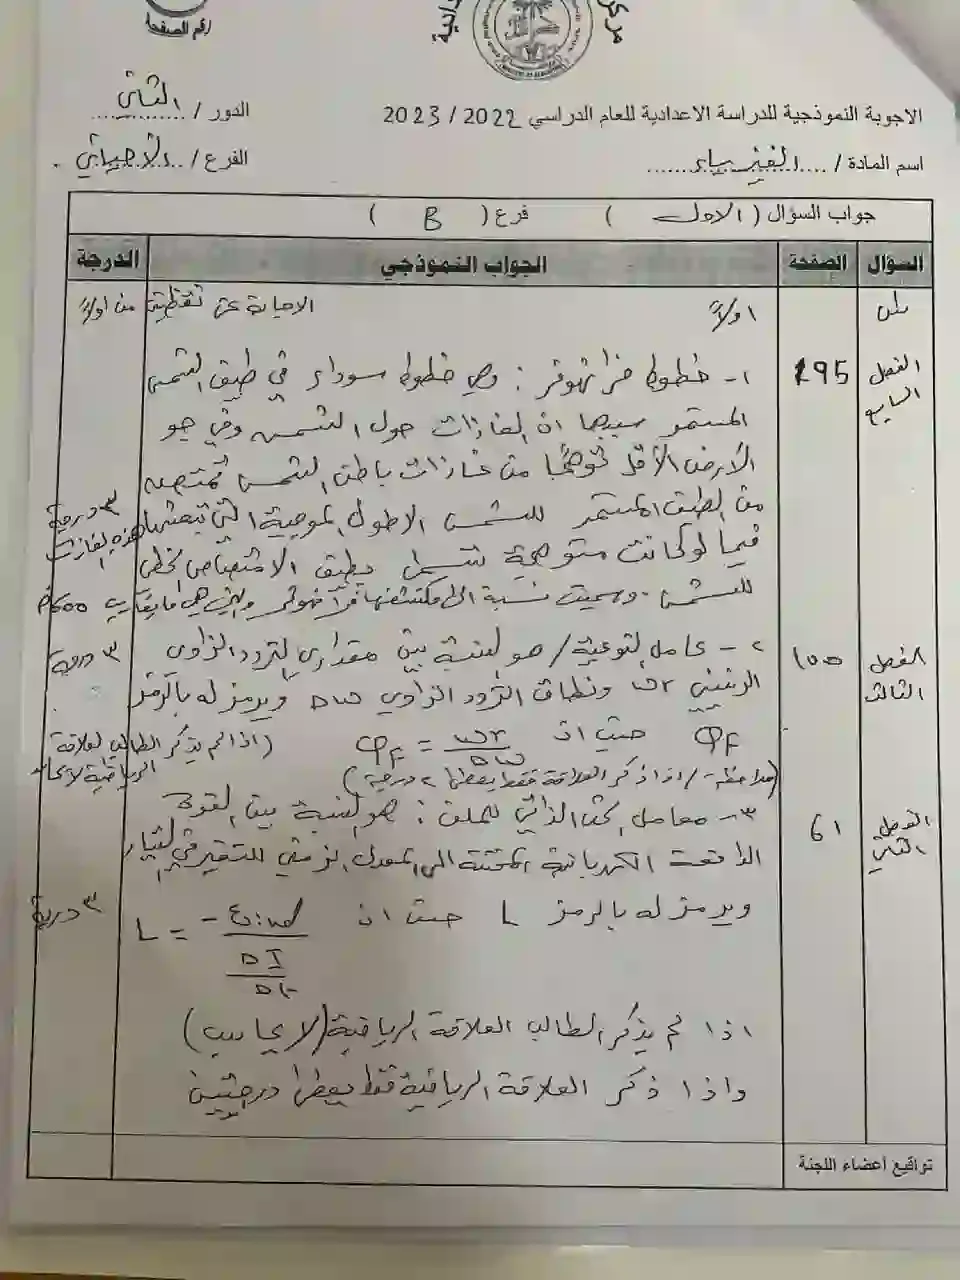 رقم الصفحة
الاجوبة النموذجية للدراسة الاعدادية للعام الدراسي 2022 / 2023
الدور / الثاني
اسم المادة / الفيزياء
الفرع / الاحيائي
جواب السؤال ( الاول ) فرع ( B )
السؤال الصفحة الجواب النموذجي الدرجة
اولاً الاجابة عن نقطتين من اولاً
الفصل السابع 195 ١- خطوط فرانهوفر : وهي خطوط سوداء في طيف الشمس
المستمر سببها ان الغازات حول الشمس وفي جو
الأرض الأقل توهجاً من غازات باطن الشمس تمتصه
من الطيف المستمر للشمس الاطوال الموجية التي تبعثها هذه الغازات ٣ درجة
فيما لو كانت متوهجة تسمى بطيف الامتصاص الخطي
للشمس . وسميت نسبة الى مكتشفها فرانهوفر والتي هي ما يقارب 600
الفصل الثالث 100 ٢- عامل النوعية / هو النسبة بين مقداري التردد الزاوي ٣ درجة
الرنيني ωr ونطاق التردد الزاوي Δω ويرمز له بالرمز
QF حيث ان QF = ωr / Δω (اذا لم يذكر الطالب العلاقة
الرياضية لا يحاسب
(ملاحظة / اذا ذكر العلاقة فقط يعطى ٢ درجة)
الفصل الثاني 61 ٣- معامل الحث الذاتي للملف : هو النسبة بين القوة
الدافعة الكهربائية المحتثة الى المعدل الزمني للتغير في التيار
ويرمز له بالرمز L حيث ان L = -εind / (ΔI / Δt) ٣ درجة
اذا لم يذكر الطالب العلاقة الرياضية (لا يحاسب)
واذا ذكر العلاقة الرياضية فقط يعطى درجتين
تواقيع اعضاء اللجنة